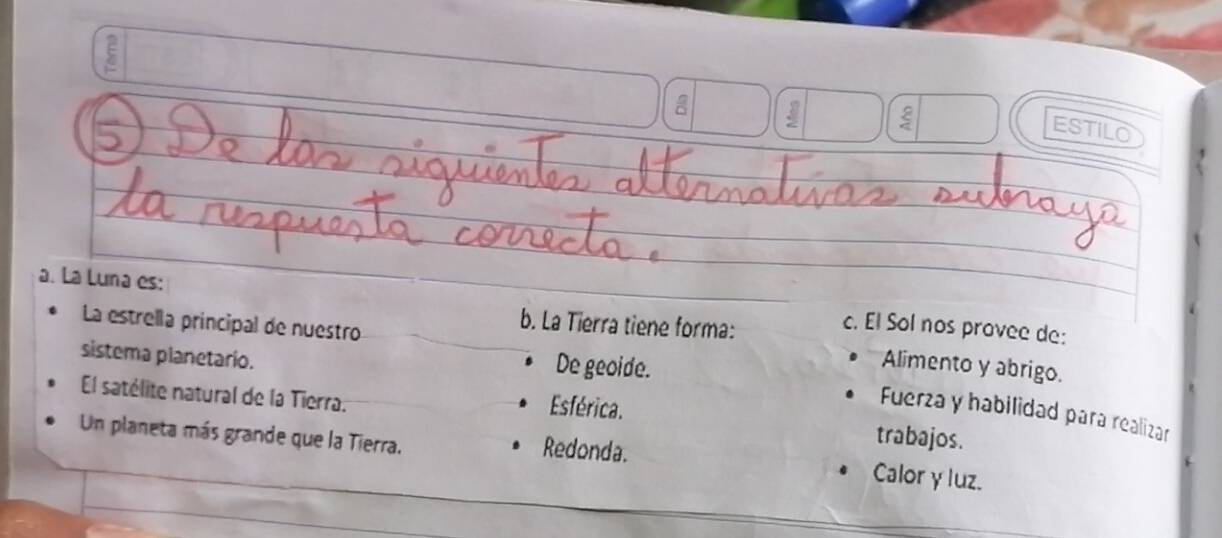 Tema
Día
Mes
Año
ESTILO
5 De las siguientes alternativas subraya
la respuesta correcta.
a. La Luna es:
• La estrella principal de nuestro
sistema planetario.
• El satélite natural de la Tierra.
• Un planeta más grande que la Tierra.
b. La Tierra tiene forma:
• De geoide.
• Esférica.
• Redonda.
c. El Sol nos provee de:
• Alimento y abrigo.
• Fuerza y habilidad para realizar
trabajos.
• Calor y luz.